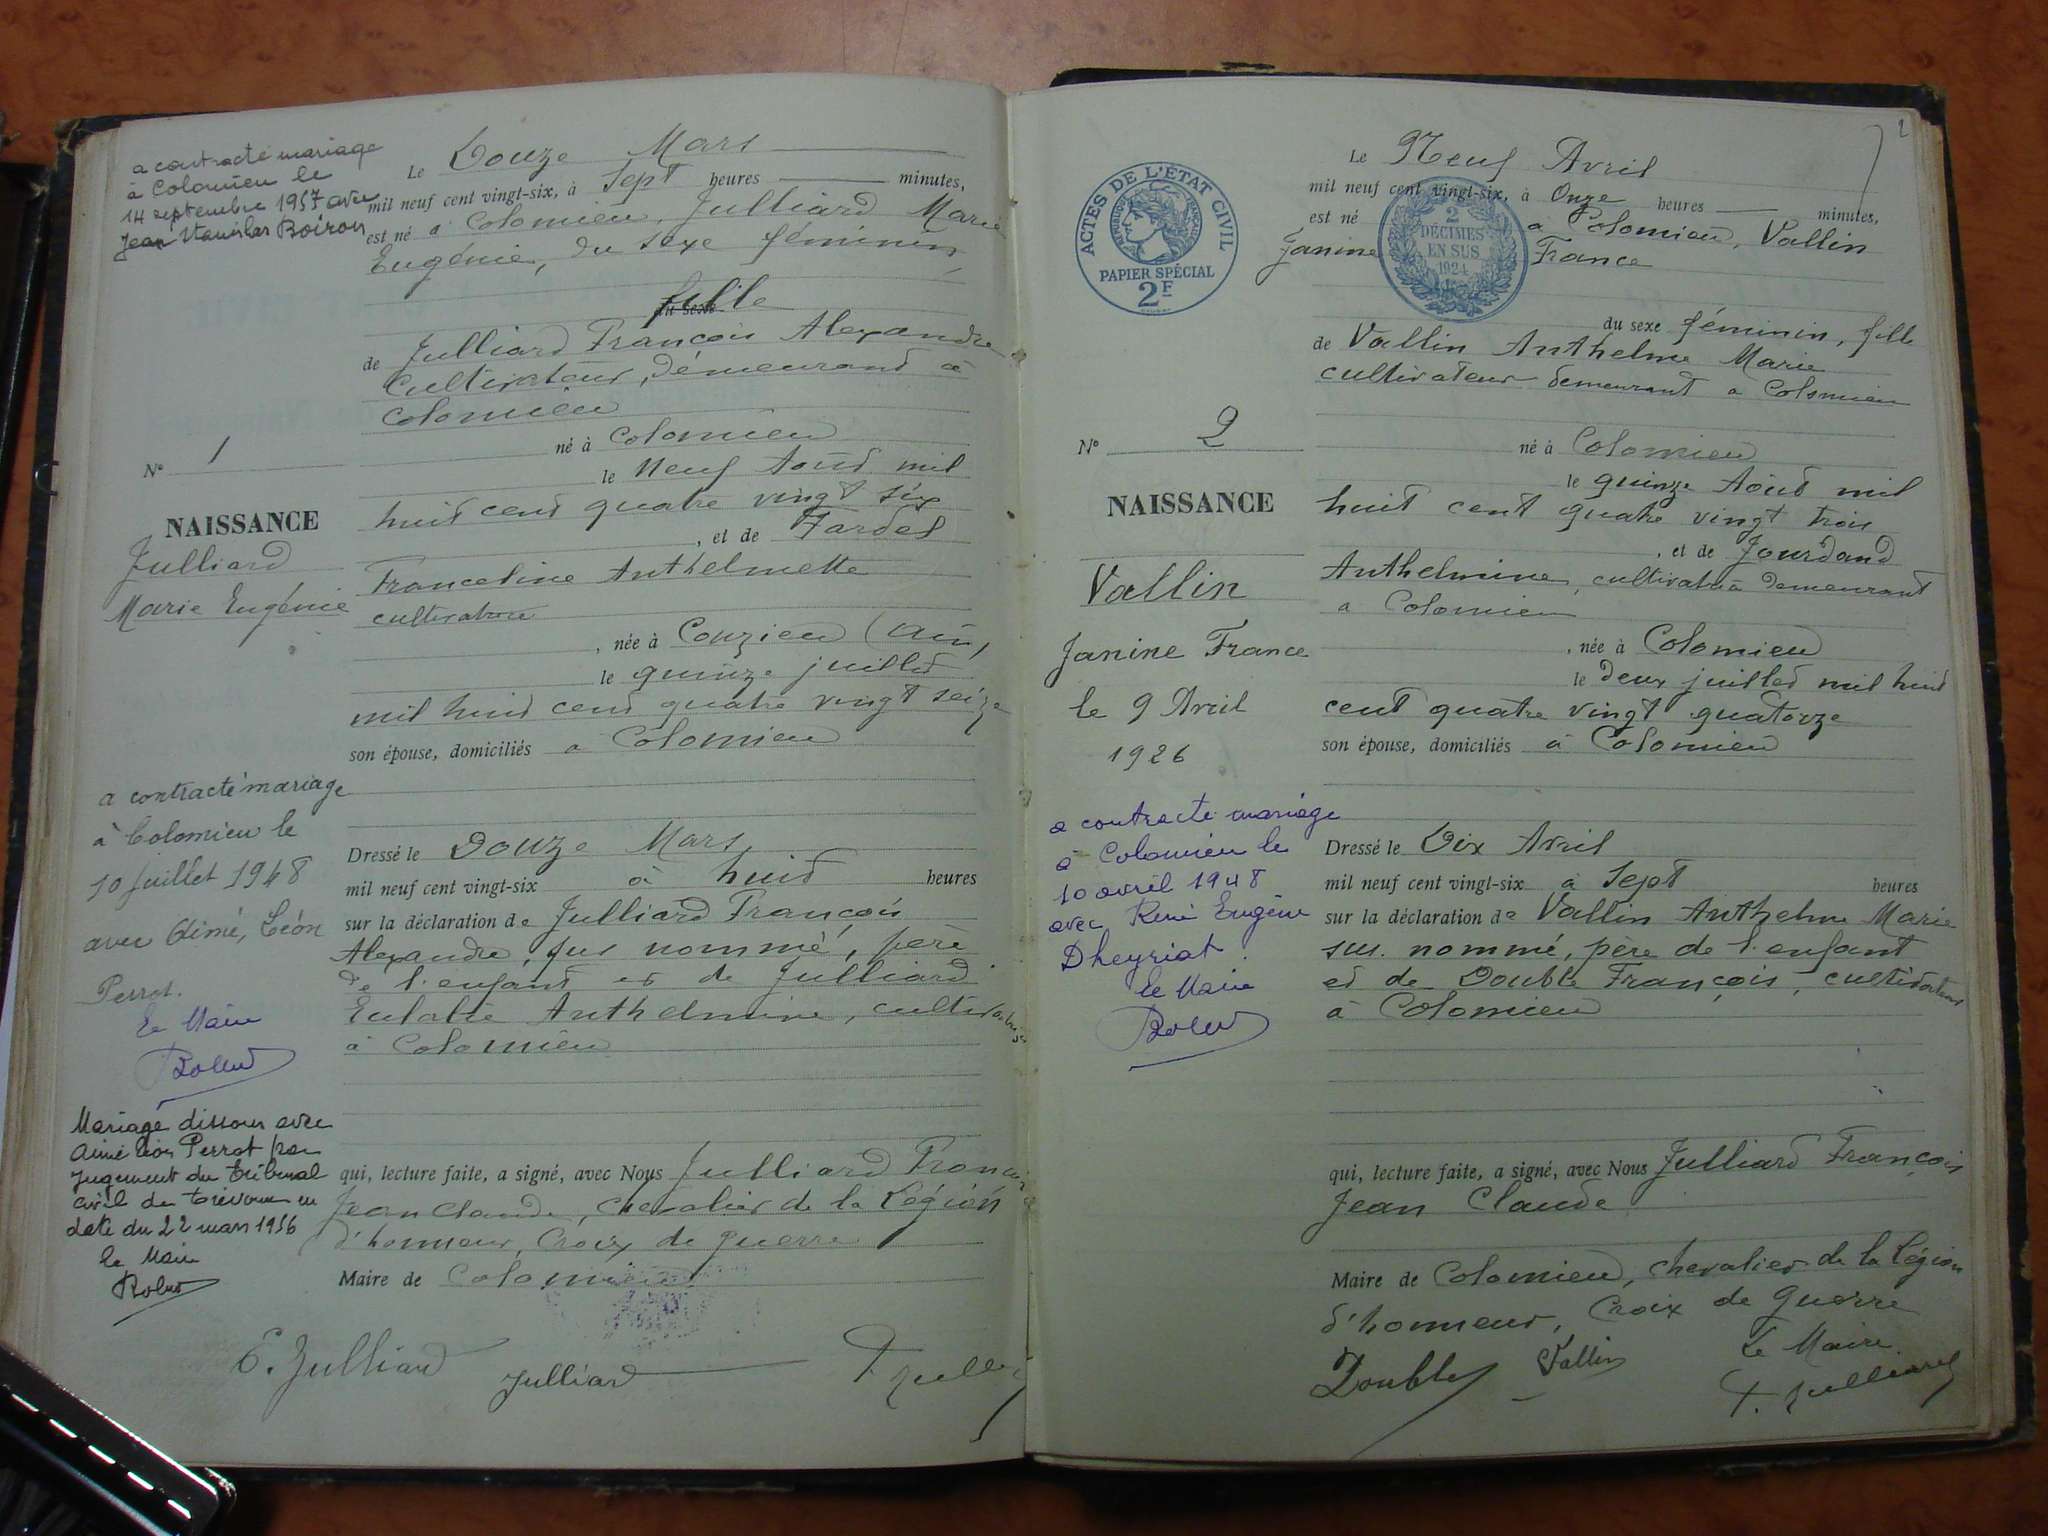 a contracté mariage
à Colomieu le
14 septembre 1957 avec
Jean Stanislas Boiron
Le Douze Mars
mil neuf cent vingt-six, à Sept heures minutes,
est né à Colomieu, Julliard Marie
Eugénie, du sexe féminin,
fille
du sexe
de Julliard François Alexandre
cultivateur, demeurant à
Colomieu
né à Colomieu
le neuf Août mil
huit cent quatre vingt six
, et de Fardel
Franceline Anthelmette
cultivatrice
, née à Conzieu (Ain)
le quinze juillet
mil huit cent quatre vingt seize
son épouse, domiciliés à Colomieu
N° 1
NAISSANCE
Julliard
Marie Eugénie
a contracté mariage
à Colomieu le
10 juillet 1948
avec Aimé, Léon
Perrot.
Le Maire
Mariage dissous avec
Aimé Léon Perrot par
jugement du Tribunal
civil de Trévoux en
date du 22 mars 1956
le Maire
Dressé le Douze Mars
mil neuf cent vingt-six à huit heures
sur la déclaration de Julliard François
Alexandre, sus nommé, père
de l'enfant et de Julliard
Eulalie Anthelmine, cultivatrice
à Colomieu
qui, lecture faite, a signé, avec Nous Julliard François
Jean Claude, chevalier de la Légion
d'honneur, Croix de guerre
Maire de Colomieu
E. Julliard Julliard F. Julli
2
ACTES DE L'ÉTAT CIVIL
RÉPUBLIQUE FRANÇAISE
PAPIER SPÉCIAL
2F
2
DÉCIMES
EN SUS
1924
Le Neuf Avril
mil neuf cent vingt-six, à Onze heures minutes,
est né à Colomieu, Vallin
Janine France
du sexe féminin, fille
de Vallin Anthelme Marie
cultivateur demeurant à Colomieu
né à Colomieu
le quinze Août mil
huit cent quatre vingt trois
, et de Jourdand
Anthelmine, cultivatrice demeurant
à Colomieu
, née à Colomieu
le deux juillet mil huit
cent quatre vingt quatorze
son épouse, domiciliés à Colomieu
N° 2
NAISSANCE
Vallin
Janine France
le 9 Avril
1926
a contracté mariage
à Colomieu le
10 avril 1948
avec René Eugène
Dheyriat.
le Maire
Dressé le Dix Avril
mil neuf cent vingt-six à Sept heures
sur la déclaration de Vallin Anthelme Marie
sus. nommé, père de l'enfant
et de Double François, cultivateur
à Colomieu
qui, lecture faite, a signé, avec Nous Julliard François
Jean Claude
Maire de Colomieu, chevalier de la Légion
d'honneur, Croix de Guerre
Double Vallin Le Maire
F. Julliard